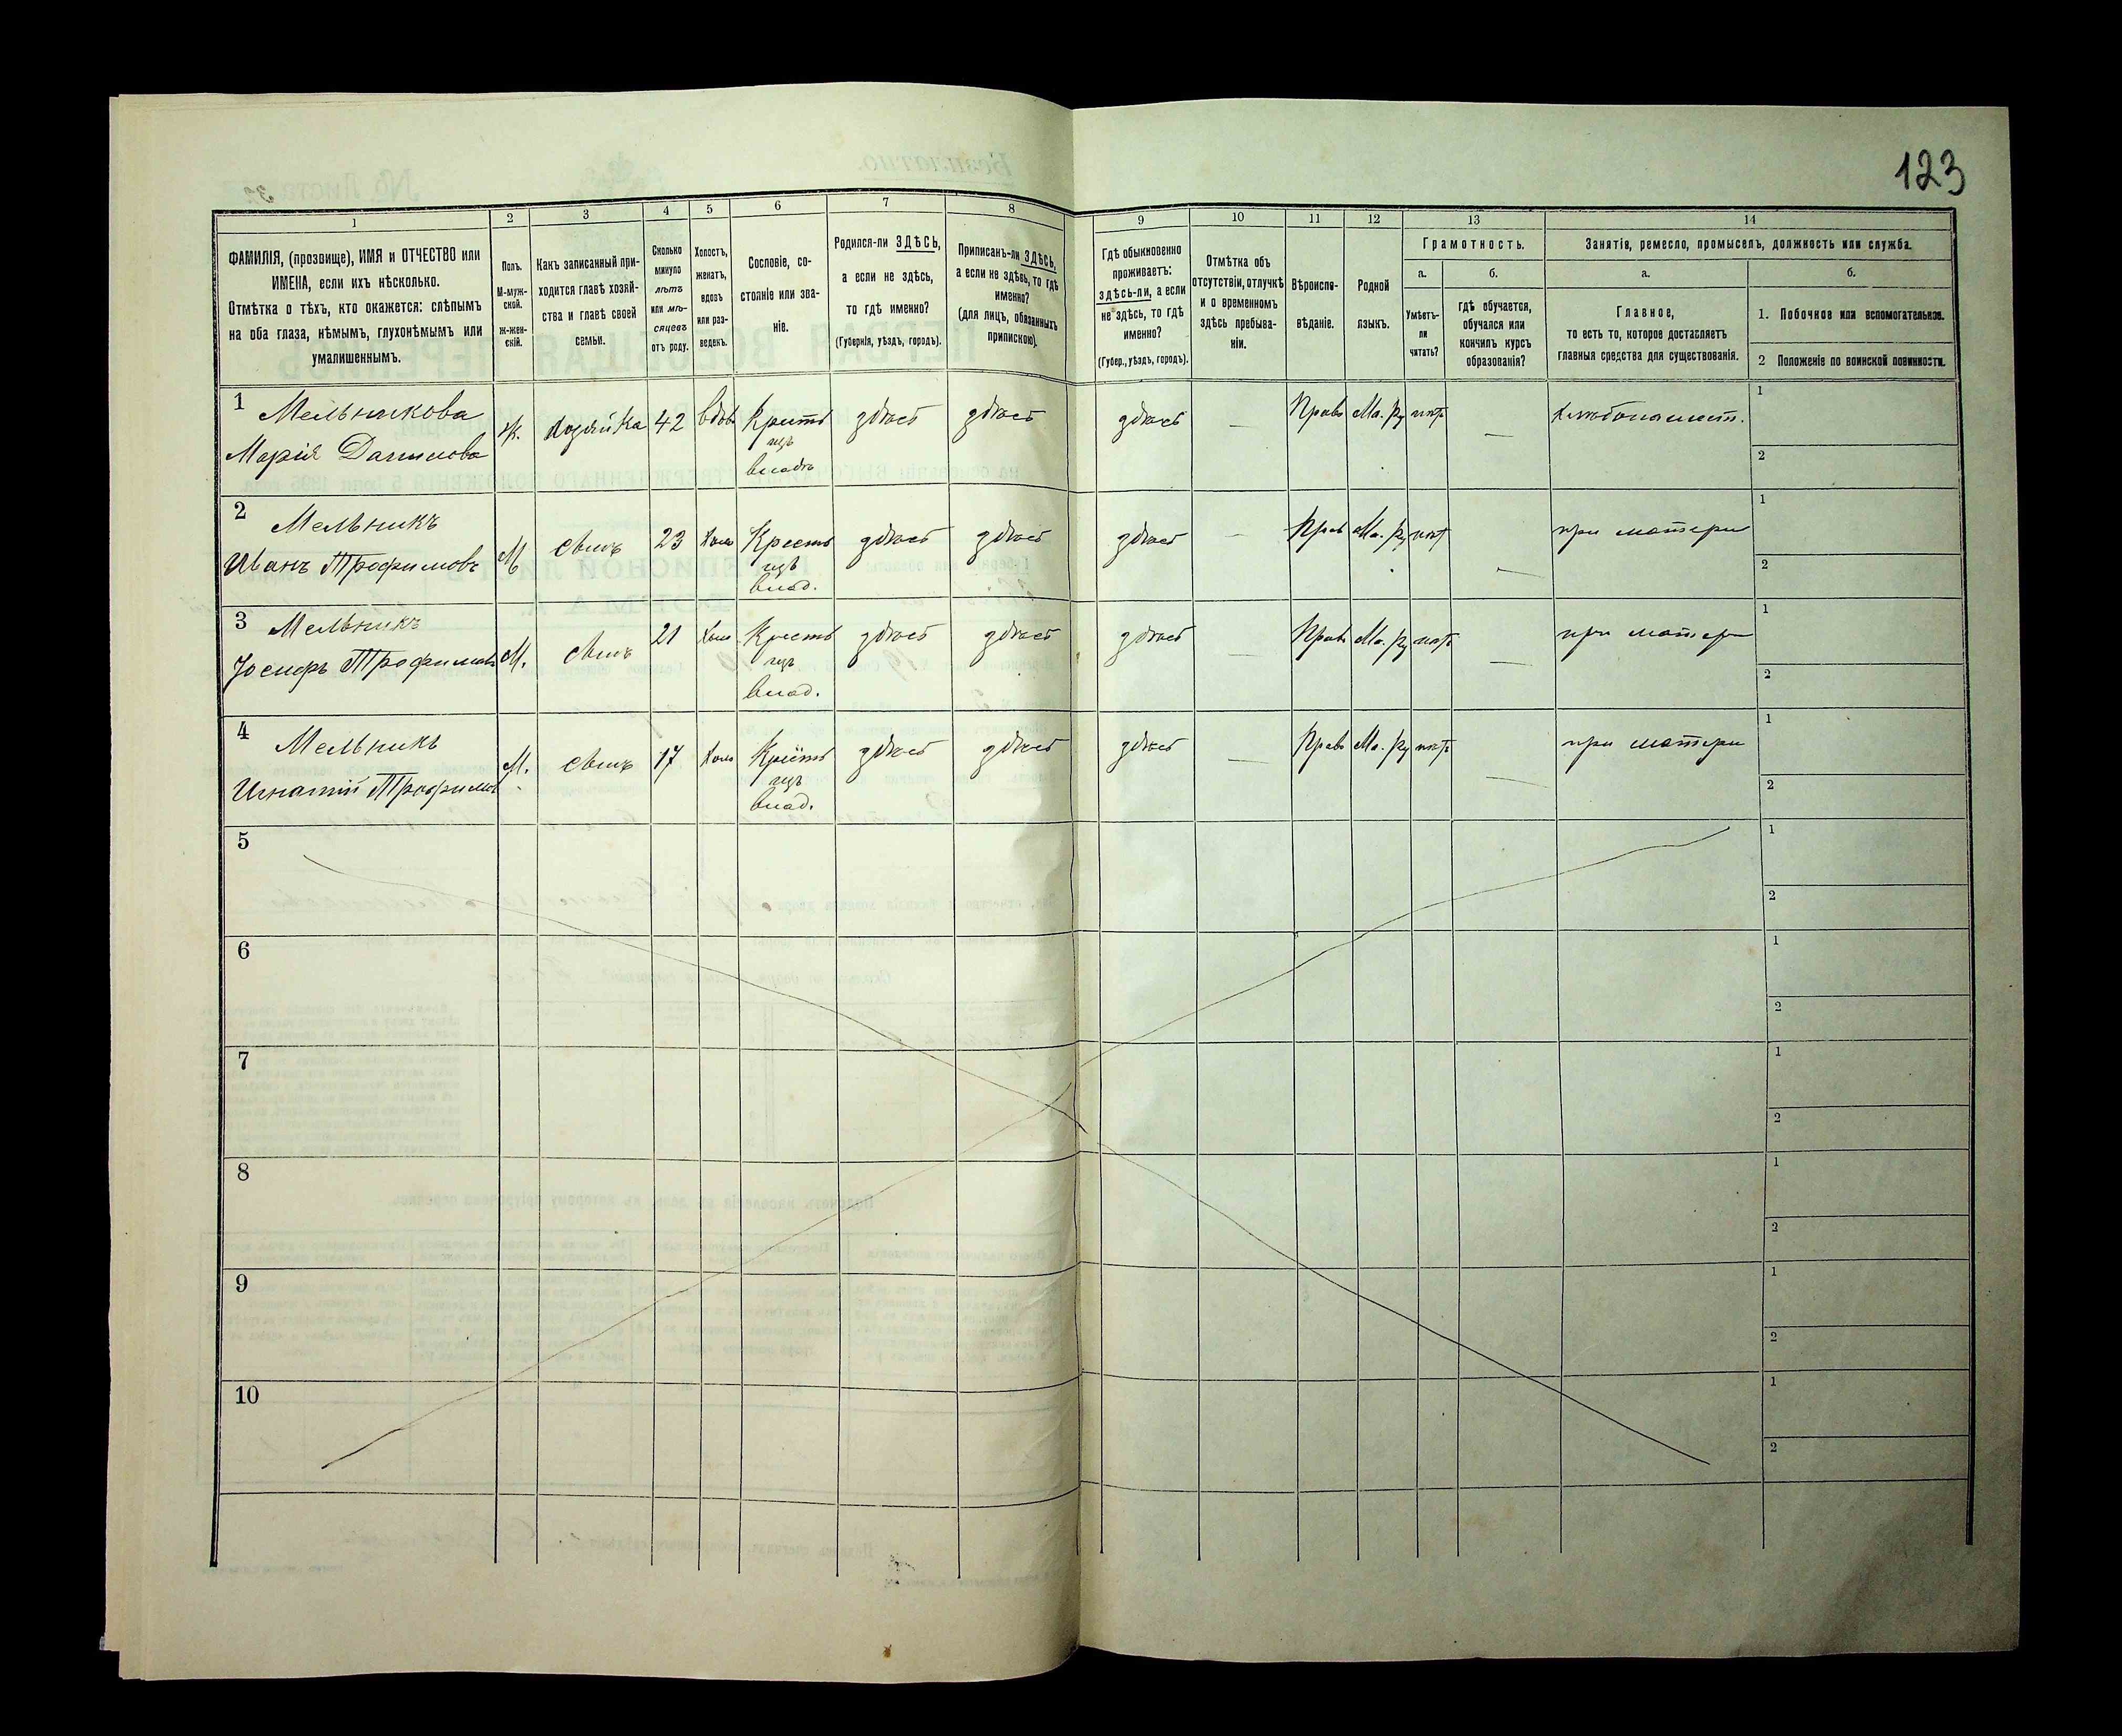 123
1
2
3
4
5
6
7
8
9
10
11
12
13
14
ФАМИЛІЯ, (прозвище), ИМЯ и ОТЧЕСТВО или
ИМЕНА, если ихъ нѣсколько.
Отмѣтка о тѣхъ, кто окажется: слѣпымъ
на оба глаза, нѣмымъ, глухонѣмымъ или
умалишеннымъ.
Полъ.
М-муж-
ской.
Ж-жен-
скій.
Какъ записанный при-
ходится главѣ хозяй-
ства и главѣ своей
семьи.
Сколько
минуло
лѣтъ
или мѣ-
сяцевъ
отъ роду.
Холостъ,
женатъ,
вдовъ
или раз-
веденъ.
Сословіе, со-
стояніе или зва-
ніе.
Родился-ли ЗДѢСЬ,
а если не здѣсь,
то гдѣ именно?
(Губернія, уѣздъ, городъ).
Приписанъ-ли ЗДѢСЬ,
а если не здѣсь, то гдѣ
именно?
(для лицъ, обязанныхъ
припискою).
Гдѣ обыкновенно
проживаетъ:
здѣсь-ли, а если
не здѣсь, то гдѣ
именно?
(Губер., уѣздъ, городъ).
Отмѣтка объ
отсутствіи, отлучкѣ
и о временномъ
здѣсь пребыва-
ніи.
Вѣроиспо-
вѣданіе.
Родной
языкъ.
Грамотность.
а.
б.
Умѣетъ-
ли
читать?
гдѣ обучается,
обучался или
кончилъ курсъ
образованія?
Занятія, ремесло, промыселъ, должность или служба.
а.
б.
Главное,
то есть то, которое доставляетъ
главныя средства для существованія.
1. Побочное или вспомогательное.
2 Положеніе по воинской повинности.
1 Мельникова
Марія Данилова
ж.
хозяйка
42
вдов
Крестьян
изъ
влад
здѣсь
здѣсь
здѣсь
—
Прав
Ма. ру
нѣтъ
—
хлѣбопашест.
1
2
2 Мельникъ
Иванъ Трофимовъ
М
сынъ
23
хол
Крестьян
изъ
влад.
здѣсь
здѣсь
здѣсь
—
Прав
Ма. ру
нѣтъ
—
при матери
1
2
3 Мельникъ
Іосифъ Трофимовъ
М.
сынъ
21
хол
Крестьян
изъ
влад.
здѣсь
здѣсь
здѣсь
—
Прав
Ма. ру
нѣтъ
—
при матери
1
2
4 Мельникъ
Игнатій Трофимов
М.
сынъ
17
хол
Крестьян
изъ
влад.
здѣсь
здѣсь
здѣсь
—
Прав
Ма. ру
нѣтъ
—
при матери
1
2
5
1
2
6
1
2
7
1
2
8
1
2
9
1
2
10
1
2